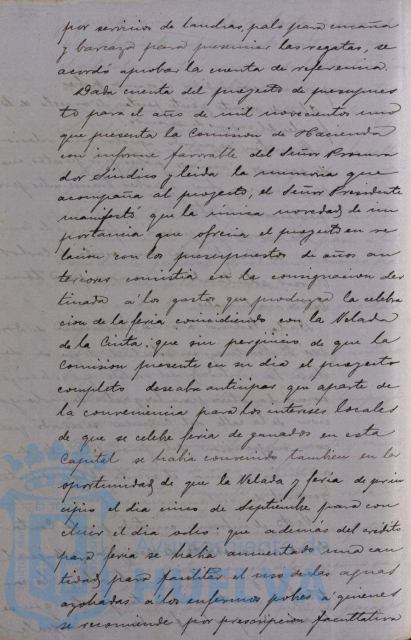 por servicios de lanchas, palo para cucaña
y barcaza para presenciar las regatas, se
acordó aprobar la cuenta de referencia.
Dada cuenta del proyecto de presupues
to para el año de mil novecientos uno
que presenta la Comisión de Hacienda
con informe favorable del Señor Procura
dor Síndico y leida la memoria que
acompaña al proyecto, el Señor Presidente
manifestó que la única novedad de im
portancia que ofrecia el proyecto en re
lacion con los presupuestos de años an
teriores consistia en la consignacion des
tinada á los gastos que produzca la celebra
cion de la feria coincidiendo con la Velada
de la Cinta; que sin perjuicio de que la
Comision presente en su dia el proyecto
completo deseaba anticipar que aparte de
la conveniencia para los intereses locales
de que se celebre feria de ganados en esta
Capital se habia convenido tambien en la
oportunidad de que la Velada y feria de prin
cipio el dia cinco de Septiembre para con
cluir el dia ocho: que además del crédito
para feria se habia aumentado una can
tidad para facilitar el uso de las aguas
azoadas á los enfermos pobres á quienes
se recomiende por prescripcion facultativa